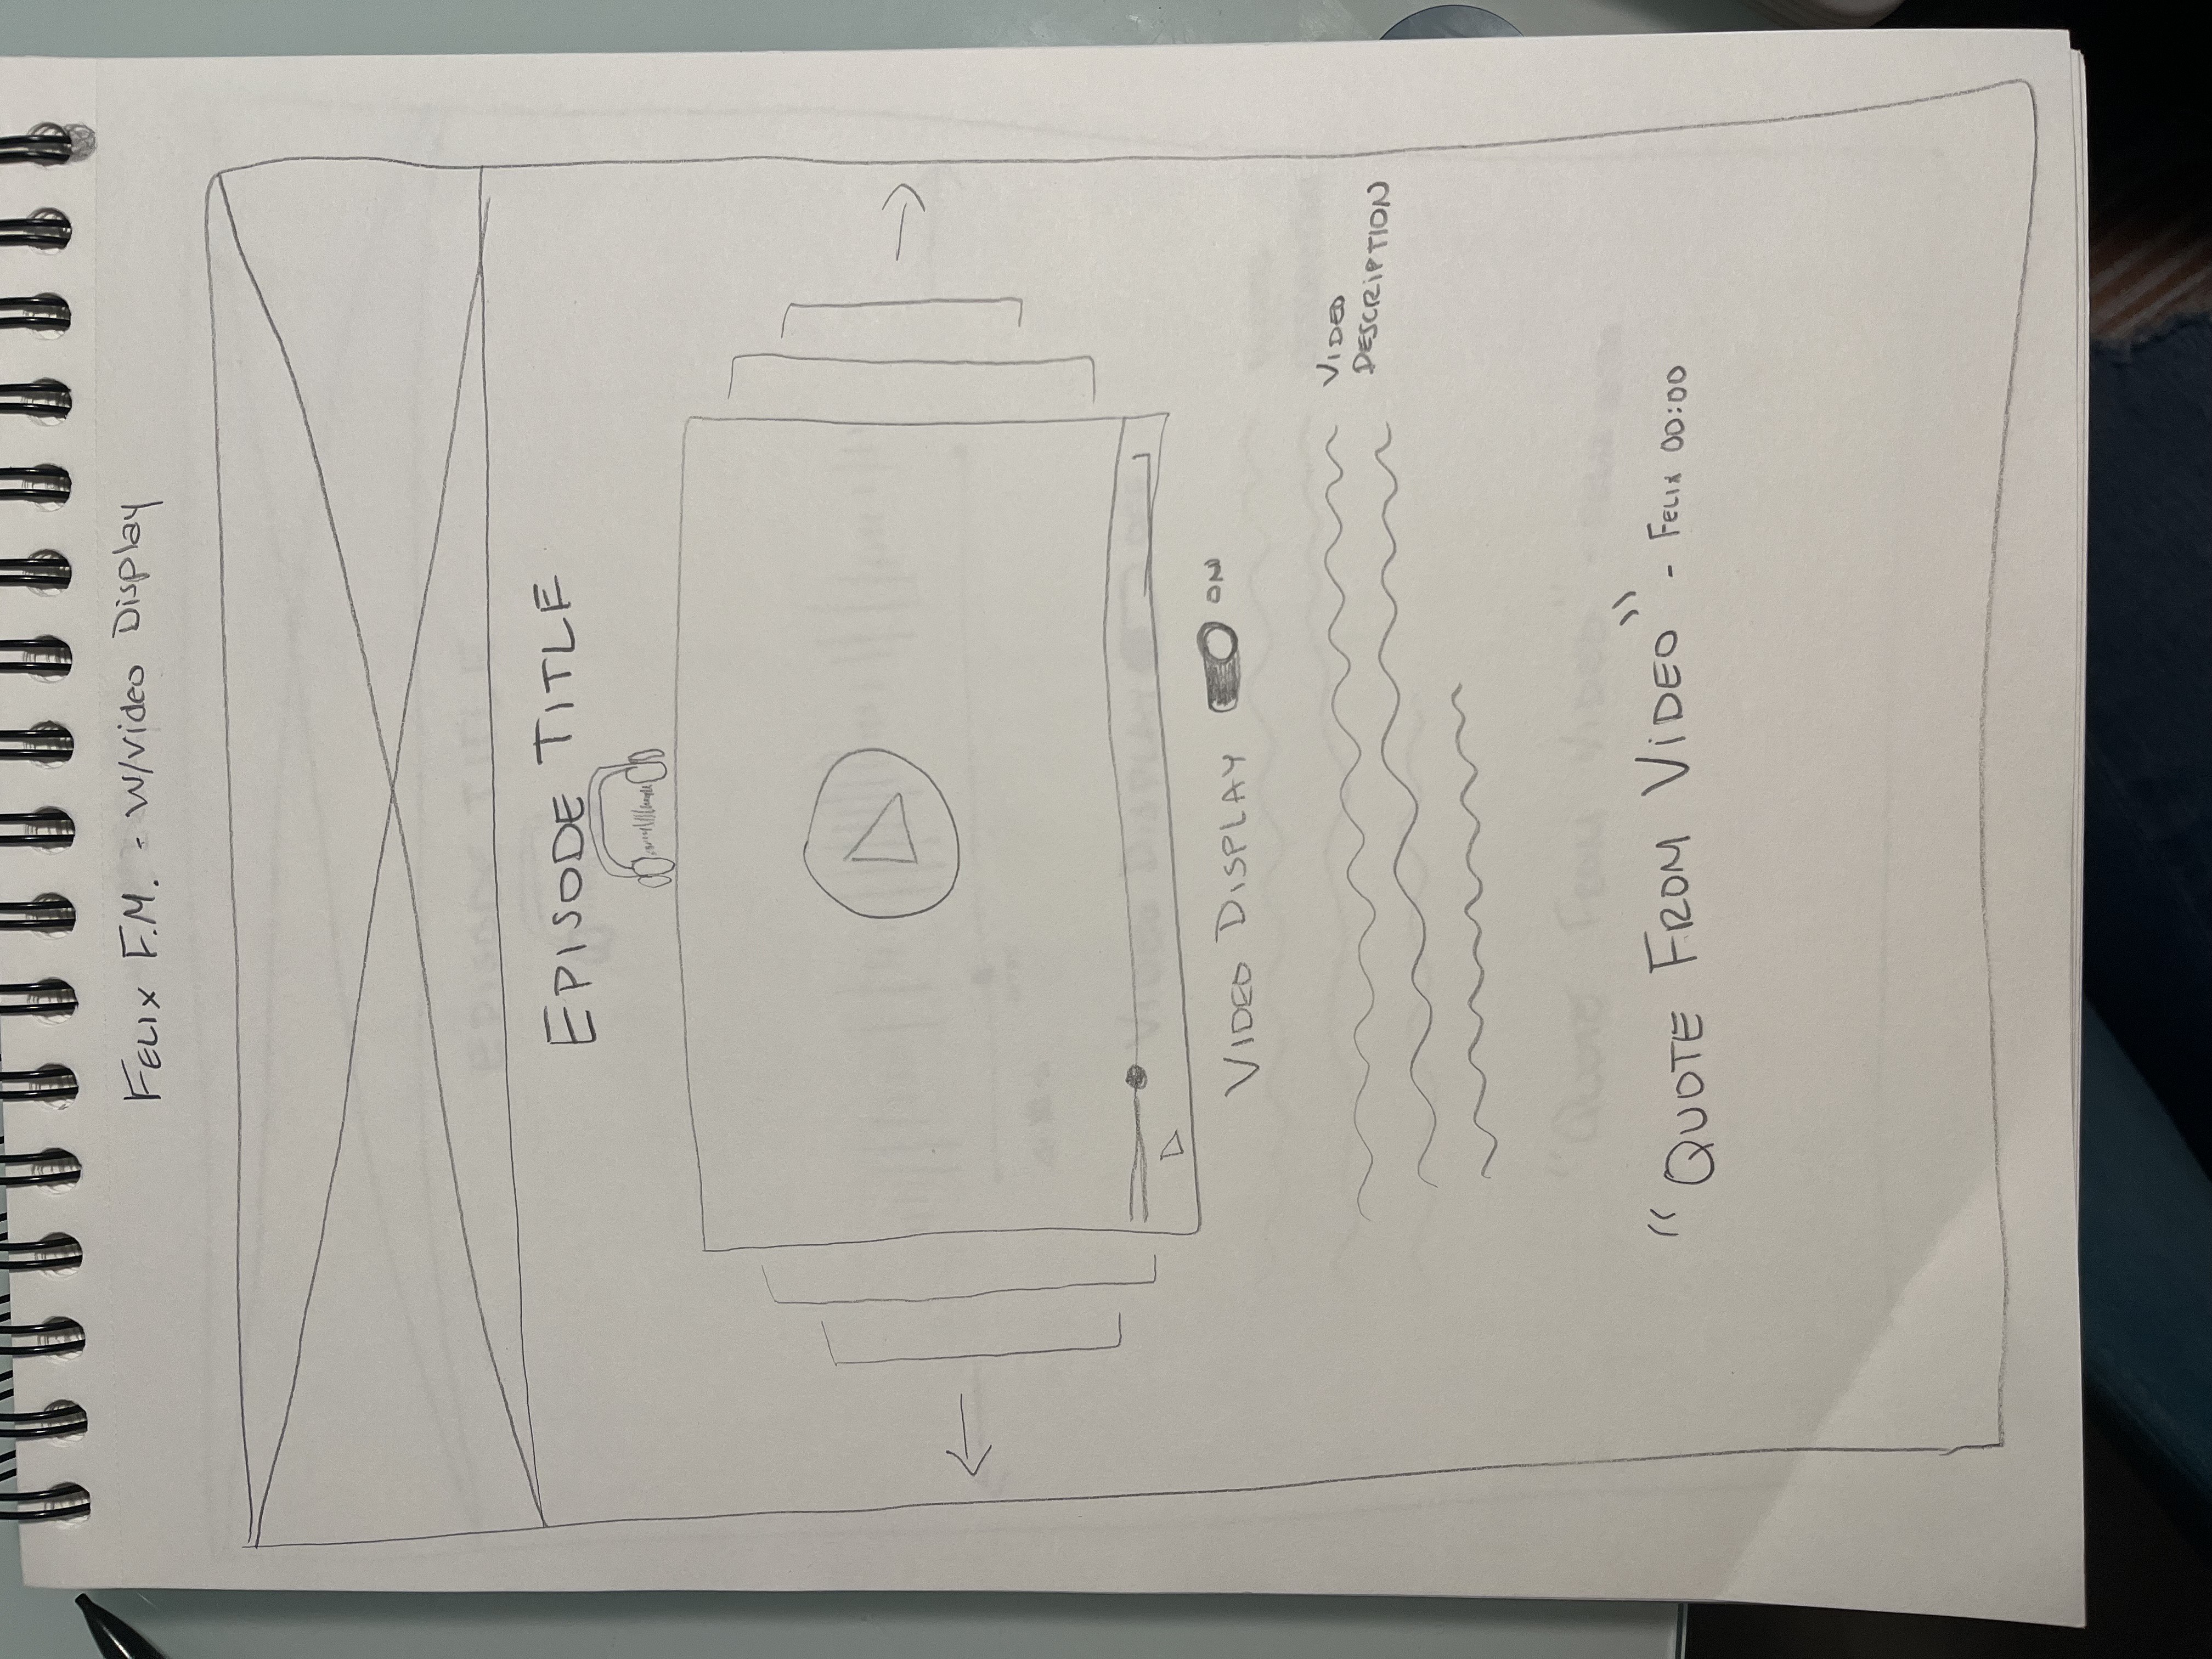 FELIX F.M. - W/video Display
EPISODE TITLE
VIDEO DISPLAY ON
VIDEO
DESCRIPTION
"QUOTE FROM VIDEO" - FELIX 00:00